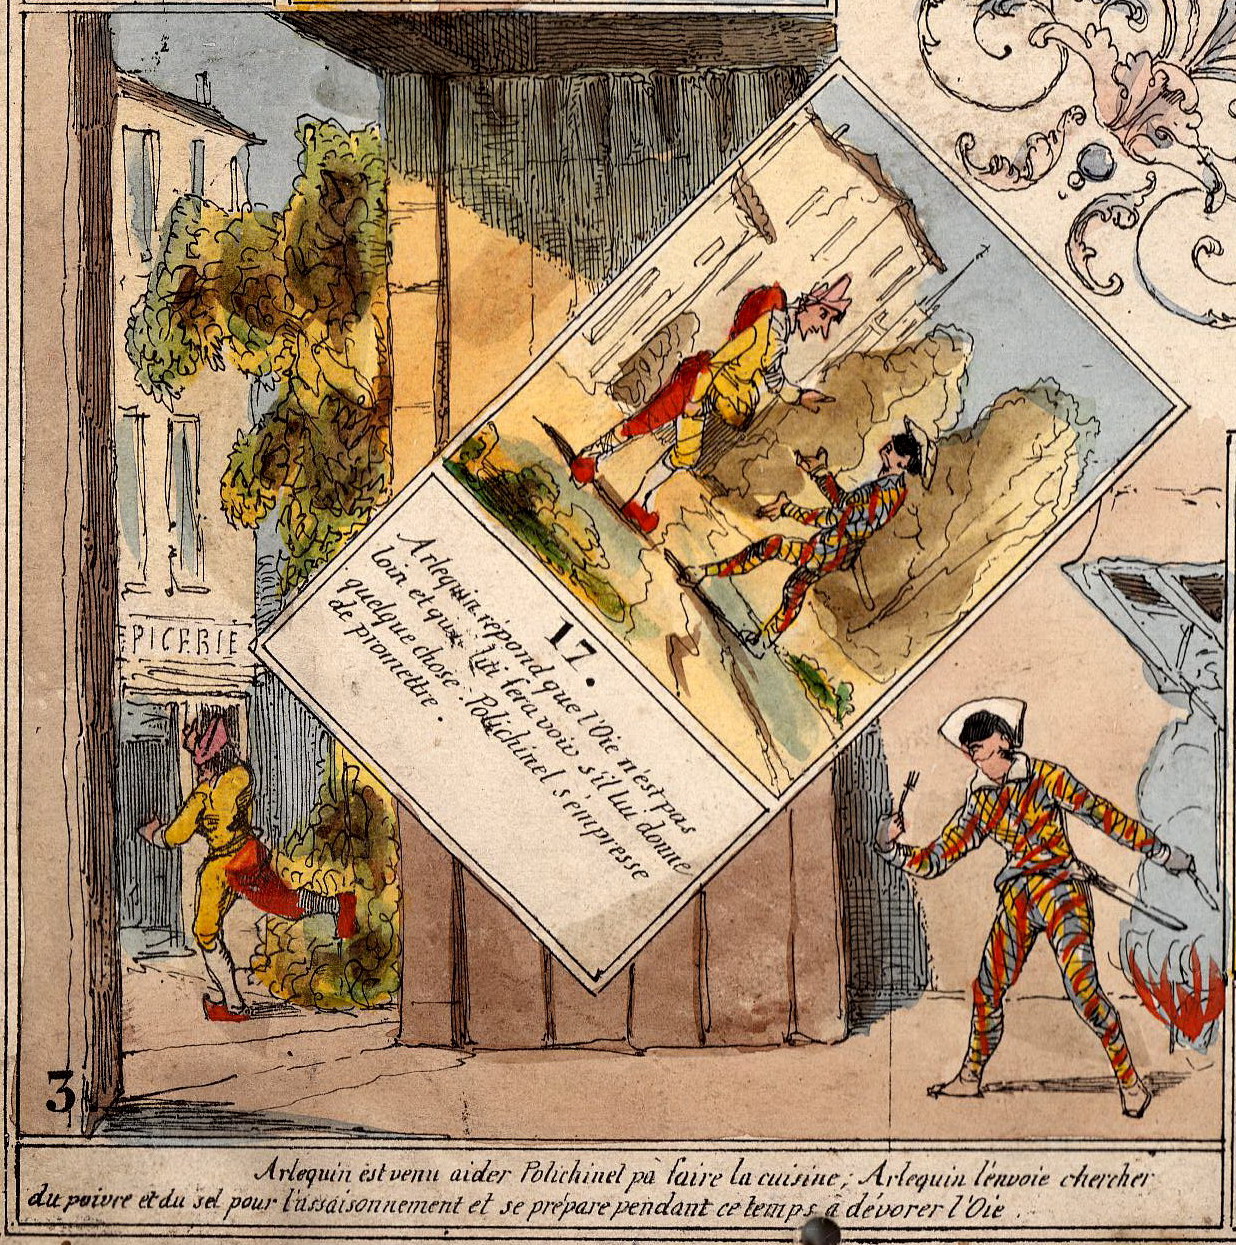 EPICERIE
17.
Arlequin répond que l'Oie n'est pas
loin et qu'il lui fera voir s'il lui donne
quelque chose. Polichinel s'empresse
de promettre.
3
Arlequin est venu aider Polichinel pà faire la cuisine; Arlequin l'envoie chercher
du poivre et du sel pour l'assaisonnement et se prépare pendant ce temps à dévorer l'Oie.